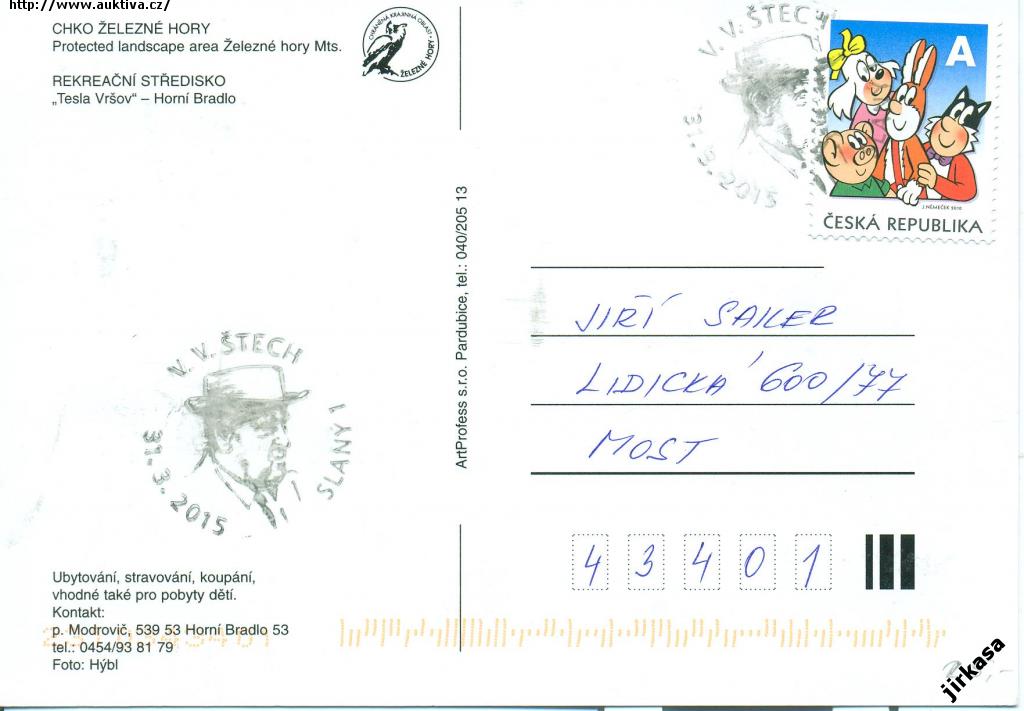 http://www.auktiva.cz/
CHKO ŽELEZNÉ HORY
Protected landscape area Železné hory Mts.
REKREAČNÍ STŘEDISKO
„Tesla Vršov“ – Horní Bradlo
CHRÁNĚNÁ KRAJINNÁ OBLAST • ŽELEZNÉ HORY •
V. V. ŠTECH
31.3.2015
A
J. NĚMEČEK 2010
ČESKÁ REPUBLIKA
ArtProfess s.r.o. Pardubice, tel.: 040/205 13
JIŘÍ SAILER
LIDICKÁ 600/77
MOST
43401
V. V. ŠTECH
31.3.2015
SLANÝ 1
Ubytování, stravování, koupání,
vhodné také pro pobyty dětí.
Kontakt:
p. Modrovič, 539 53 Horní Bradlo 53
tel.: 0454/93 81 79
Foto: Hýbl
jirkasa